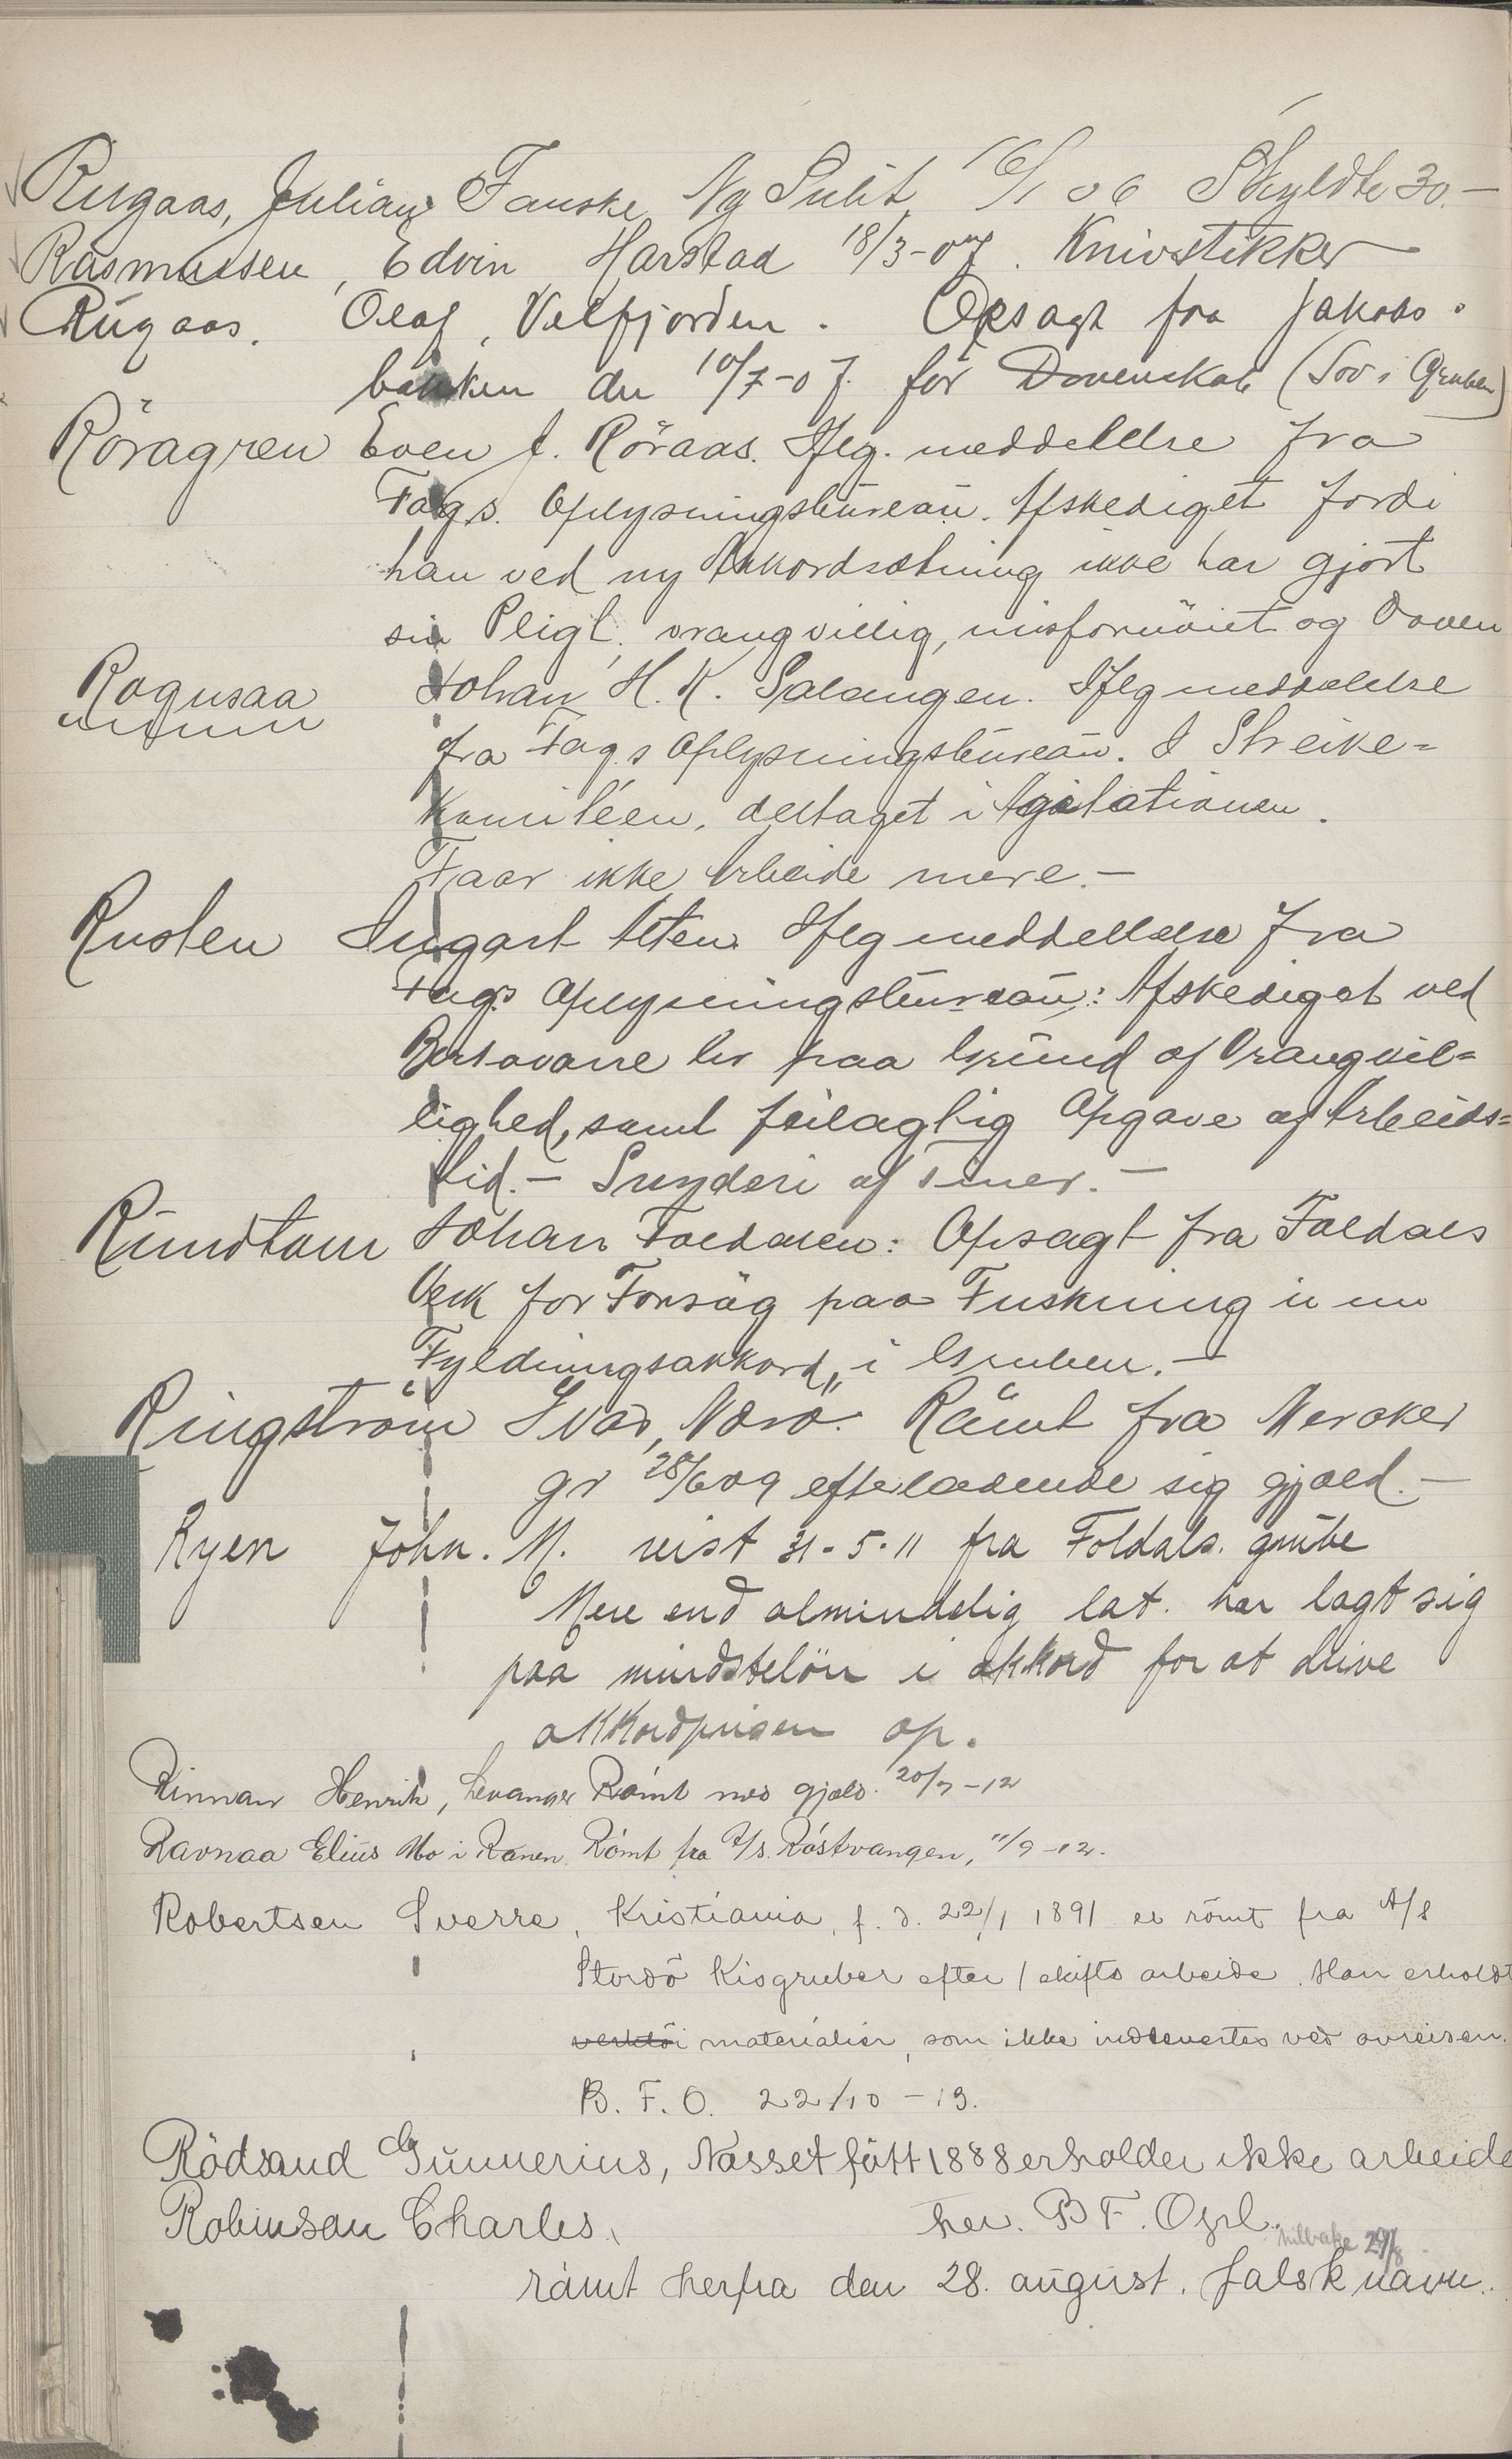 Rugaas, Julian, Fauske, Ny Sulit. 16/1 06 Skyldte 30.—
Rasmussen, Edvin Harstad 18/3-07. Knivstikker
Rugaas, Olaf, Velfjorden. Opsagt fra Jakobs-
bakken den 10/7-07. for Dovenskab (Sov i Gruben)
Röragren Even J. Röraas. Iflg. meddelelse fra
Fags. Oplysningsbureau. Afskediget fordi
han ved ny Akkordsætning ikke har gjort
sin Pligt, vrangvillig, misfornöiet og Doven
Rognsaa Johan H. K. Salangen. Iflg meddelelse
fra Fag.s Oplysningsbureau. I Streike-
Komitéen, deltaget i Agitationen.
Faar ikke Arbeide mere.—
Rusten Ingart Aten. Iflg meddellelse fra
Fags Oplysningsbureau: Afskediget ved
Birtavarre Gr paa Grund af Vrangvil=
lighed, samt feilagtig Opgave af Arbeids=
tid.— Snyderi af Timer.—
Rundtom Johan Foldalen: Opsagt fra Foldals
Verk for Forsög paa Fuskning i en
"Fyldningsakkord" i Gruben.—
Ringström Ivar, Nærö. Römt fra Meraker
gr 28/6 09 efterladende sig gjæld.—
Ryen John. M. reist 31-5-11 fra Foldals. grube
Mere end almindelig lat. har lagt sig
paa mindstelön i akkord for at drive
akkordprisen op.
Rinnan Henrik, Levanger Römt med gjæld. 20/7-12
Ravnaa Elius Mo i Ranen. Römt fra A/s. Röstvangen, 11/9-12.
Robertsen Sverre, Kristiania, f. d. 22/1 1891 er römt fra A/S
Stordö Kisgruber efter 1 skifts arbeide. Han erholdt
verktöi materialier, som ikke indlevertes ved avreisen.
B. F. O. 22/10-13.
Rödsand Gunnerius, Næsset fött 1888 erholder ikke arbeide
her. B F. Opl.
Robinson Charles,
tilbake 29/8.
römt herfra den 28. august. falsk navn.